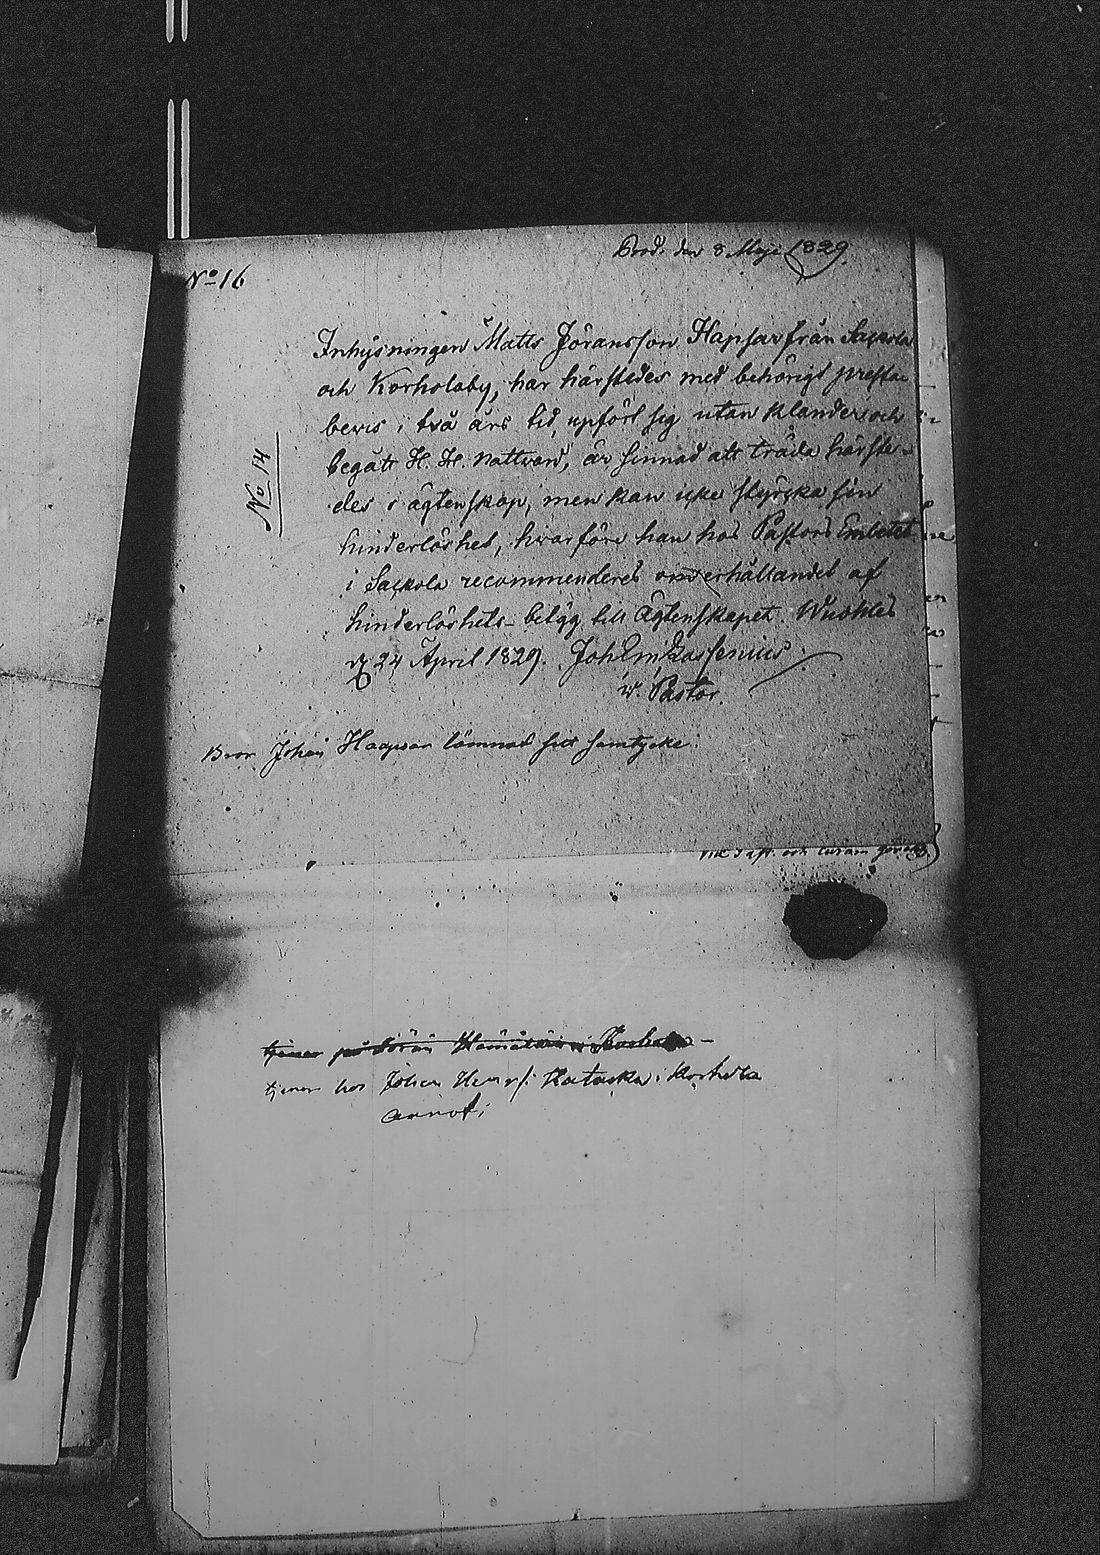 Prod. den 8 Maji 1829.
No 16
No 14
Inhysningen Matts Jöransson Hapsar från Sackola
och Korholaby, har härstedes med behörigt presta-
bevis i två års tid, upfört sig utan klander och
begått H. H. Nattvard, är sinnad att träda härste-
des i ägtenskap, men kan icke styrcka sin
hinderlöshet, hvarföre han hos Pastors Embetet
i Sackola recommenderes om erhållandet af
hinderlöshets-betyg till ägtenskapet. Wuokles
d 24 April 1829. Joh
v. Pastor.
Bror Johan Haapsar lämnad sitt samtycke.
och
tjener hos Johan Henr: i Korhola